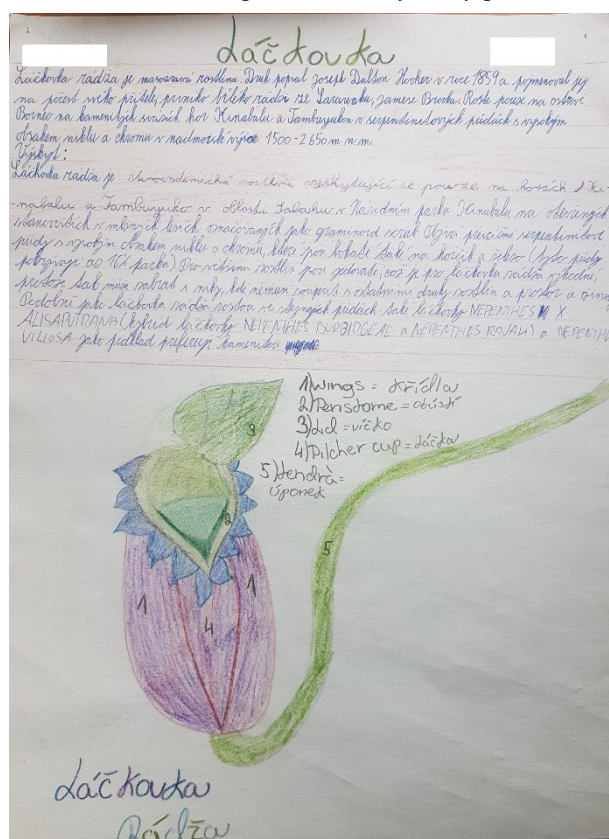 Láčkovka
Láčkovka rádža je masožravá rostlina. Druh popsal Joseph Dalton Hooker v roce 1859 a pojmenoval jej
na počest svého přítele, prvního bílého rádži ze Sarawaku, Jamese Brooka. Roste pouze na ostrově
Borneo na kamenitých svazích hor Kinabalu a Tambuyukon v serpentinitových půdách s vysokým
obsahem niklu a chromu v nadmořské výšce 1500-2650 m n. m.
Výskyt:
Láčkovka rádža je stenoendemická rostlina vyskytující se pouze na horách Ki-
nabalu a Tambuyuko v oblasti Sabahu v Národním parku Kinabalu na otevřených
stanovištích v mlžných lesích označovaných jako
půdy s vysokým obsahem niklu a chromu, které jsou bohaté také na hořčík a železo (tyto půdy
pokrývají až 16% parku) Pro většinu rostlin jsou jedovaté, což je pro láčkovku rádžu výhodné,
protože tak může zabrat niky, kde nemusí soupeřit s ostatními druhy rostlin o prostor a živiny
Podobně jako láčkovka rádža rostou ve stejných půdách také láčkovky NEPENTHES X
ALISAPUTRANA (hybrid láčkovky NEPENTHES a NEPENTHES RAJAH) a NEPENTHES
VILIOSA Jako podklad preferuje kamenitou
1) Wings = křídla
2) Peristome = obústí
3) Lid = víčko
4) Pitcher cup = láčka
5) Tendrà =
úponek
3
2
1
1
4
5
Láčkovka
Rádža